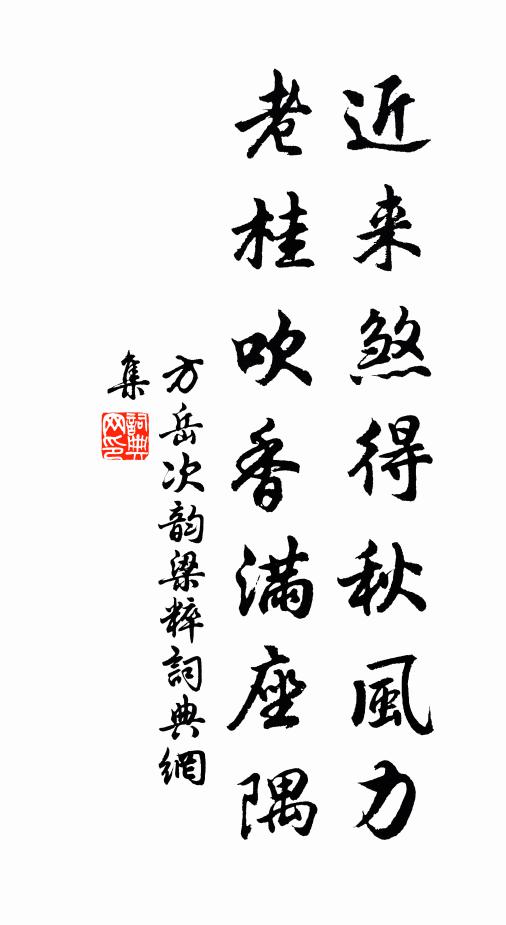 近来煞得秋風力
老桂吹香滿座隅
方岳次韵梁粹詞典網
集
詞典
网印